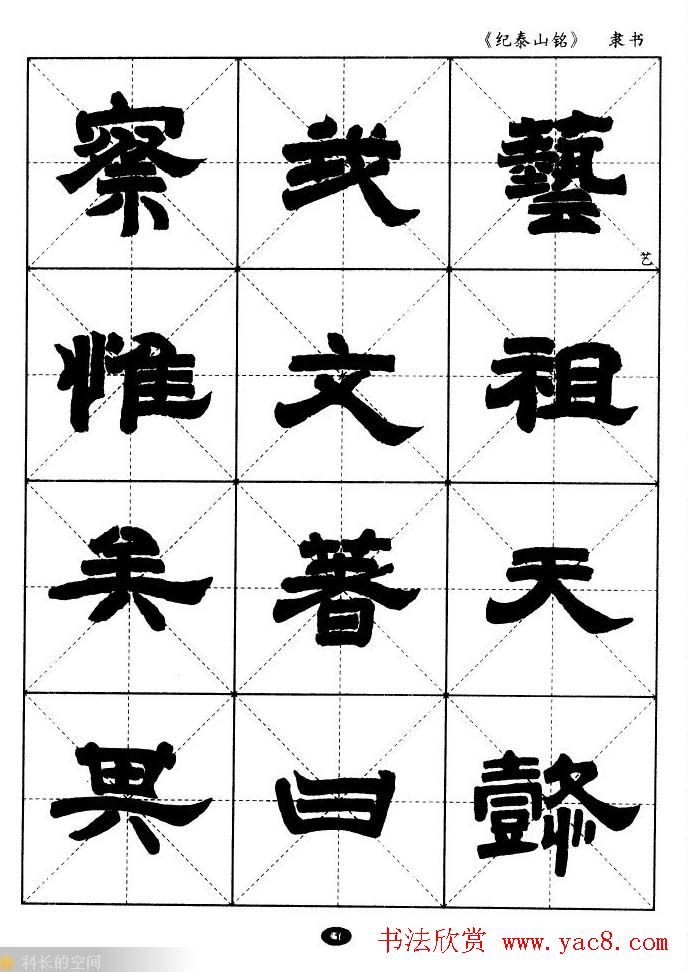 《纪泰山铭》 隶书
藝
艺
祖
天
懿
或
文
著
曰
察
惟
矣
異
书法欣赏 www.yac8.com
科长的空间